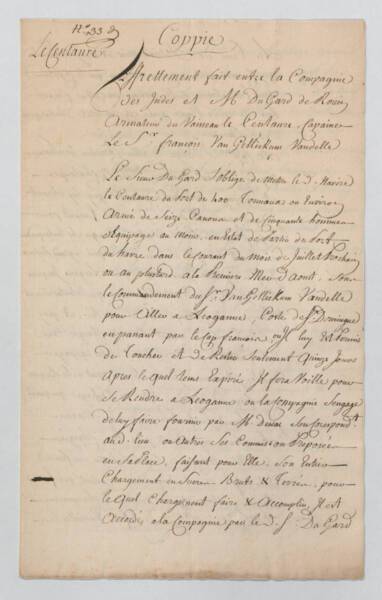 N° 33
Le Centaure
Coppie
Affrettement fait entre la Compagnie
des Indes et M. Du Gard de Rouen
Armateur du Vaisseau le Centaure, Capaine
Le Sr. françois Van Gellickum Vandelle
Le Sieur Du Gard s'oblige de mettre le d. Navire
le Centaure du Port de 400 Tonneaux ou Environ
Armé de Seize Canons et de Cinquante hommes
d'Equipage au moins, en Estat de Partir du Port
du havre dans le Courant du mois de Juillet Prochain
ou au plustard a la Premiere Mer d'Aout. Sous
le Commandement du Sr. Van Gellickum Vandelle
pour Aller a Leoganne, Coste de St. Domingue
en passant par le Cap francois, ou Il luy Est Permis
de Toucher et de Rester Seulement Quinze Jours
Apres le quel tems Expiré, Il fera Voille pour
Se Rendre a Leoganne ou la Compagnie s'engage
de luy faire fournir par M. son Correspondt.
au d. lieu ou Autres Ses Commis ou Preposés
en Sa Place, faisant pour Elle, Son Entier
Chargement en Sucre Bruts & Terrés, pour
le quel Chargement faire & Accomplir, Il est
Accordé a la Compagnie par le d. S. Du Gard